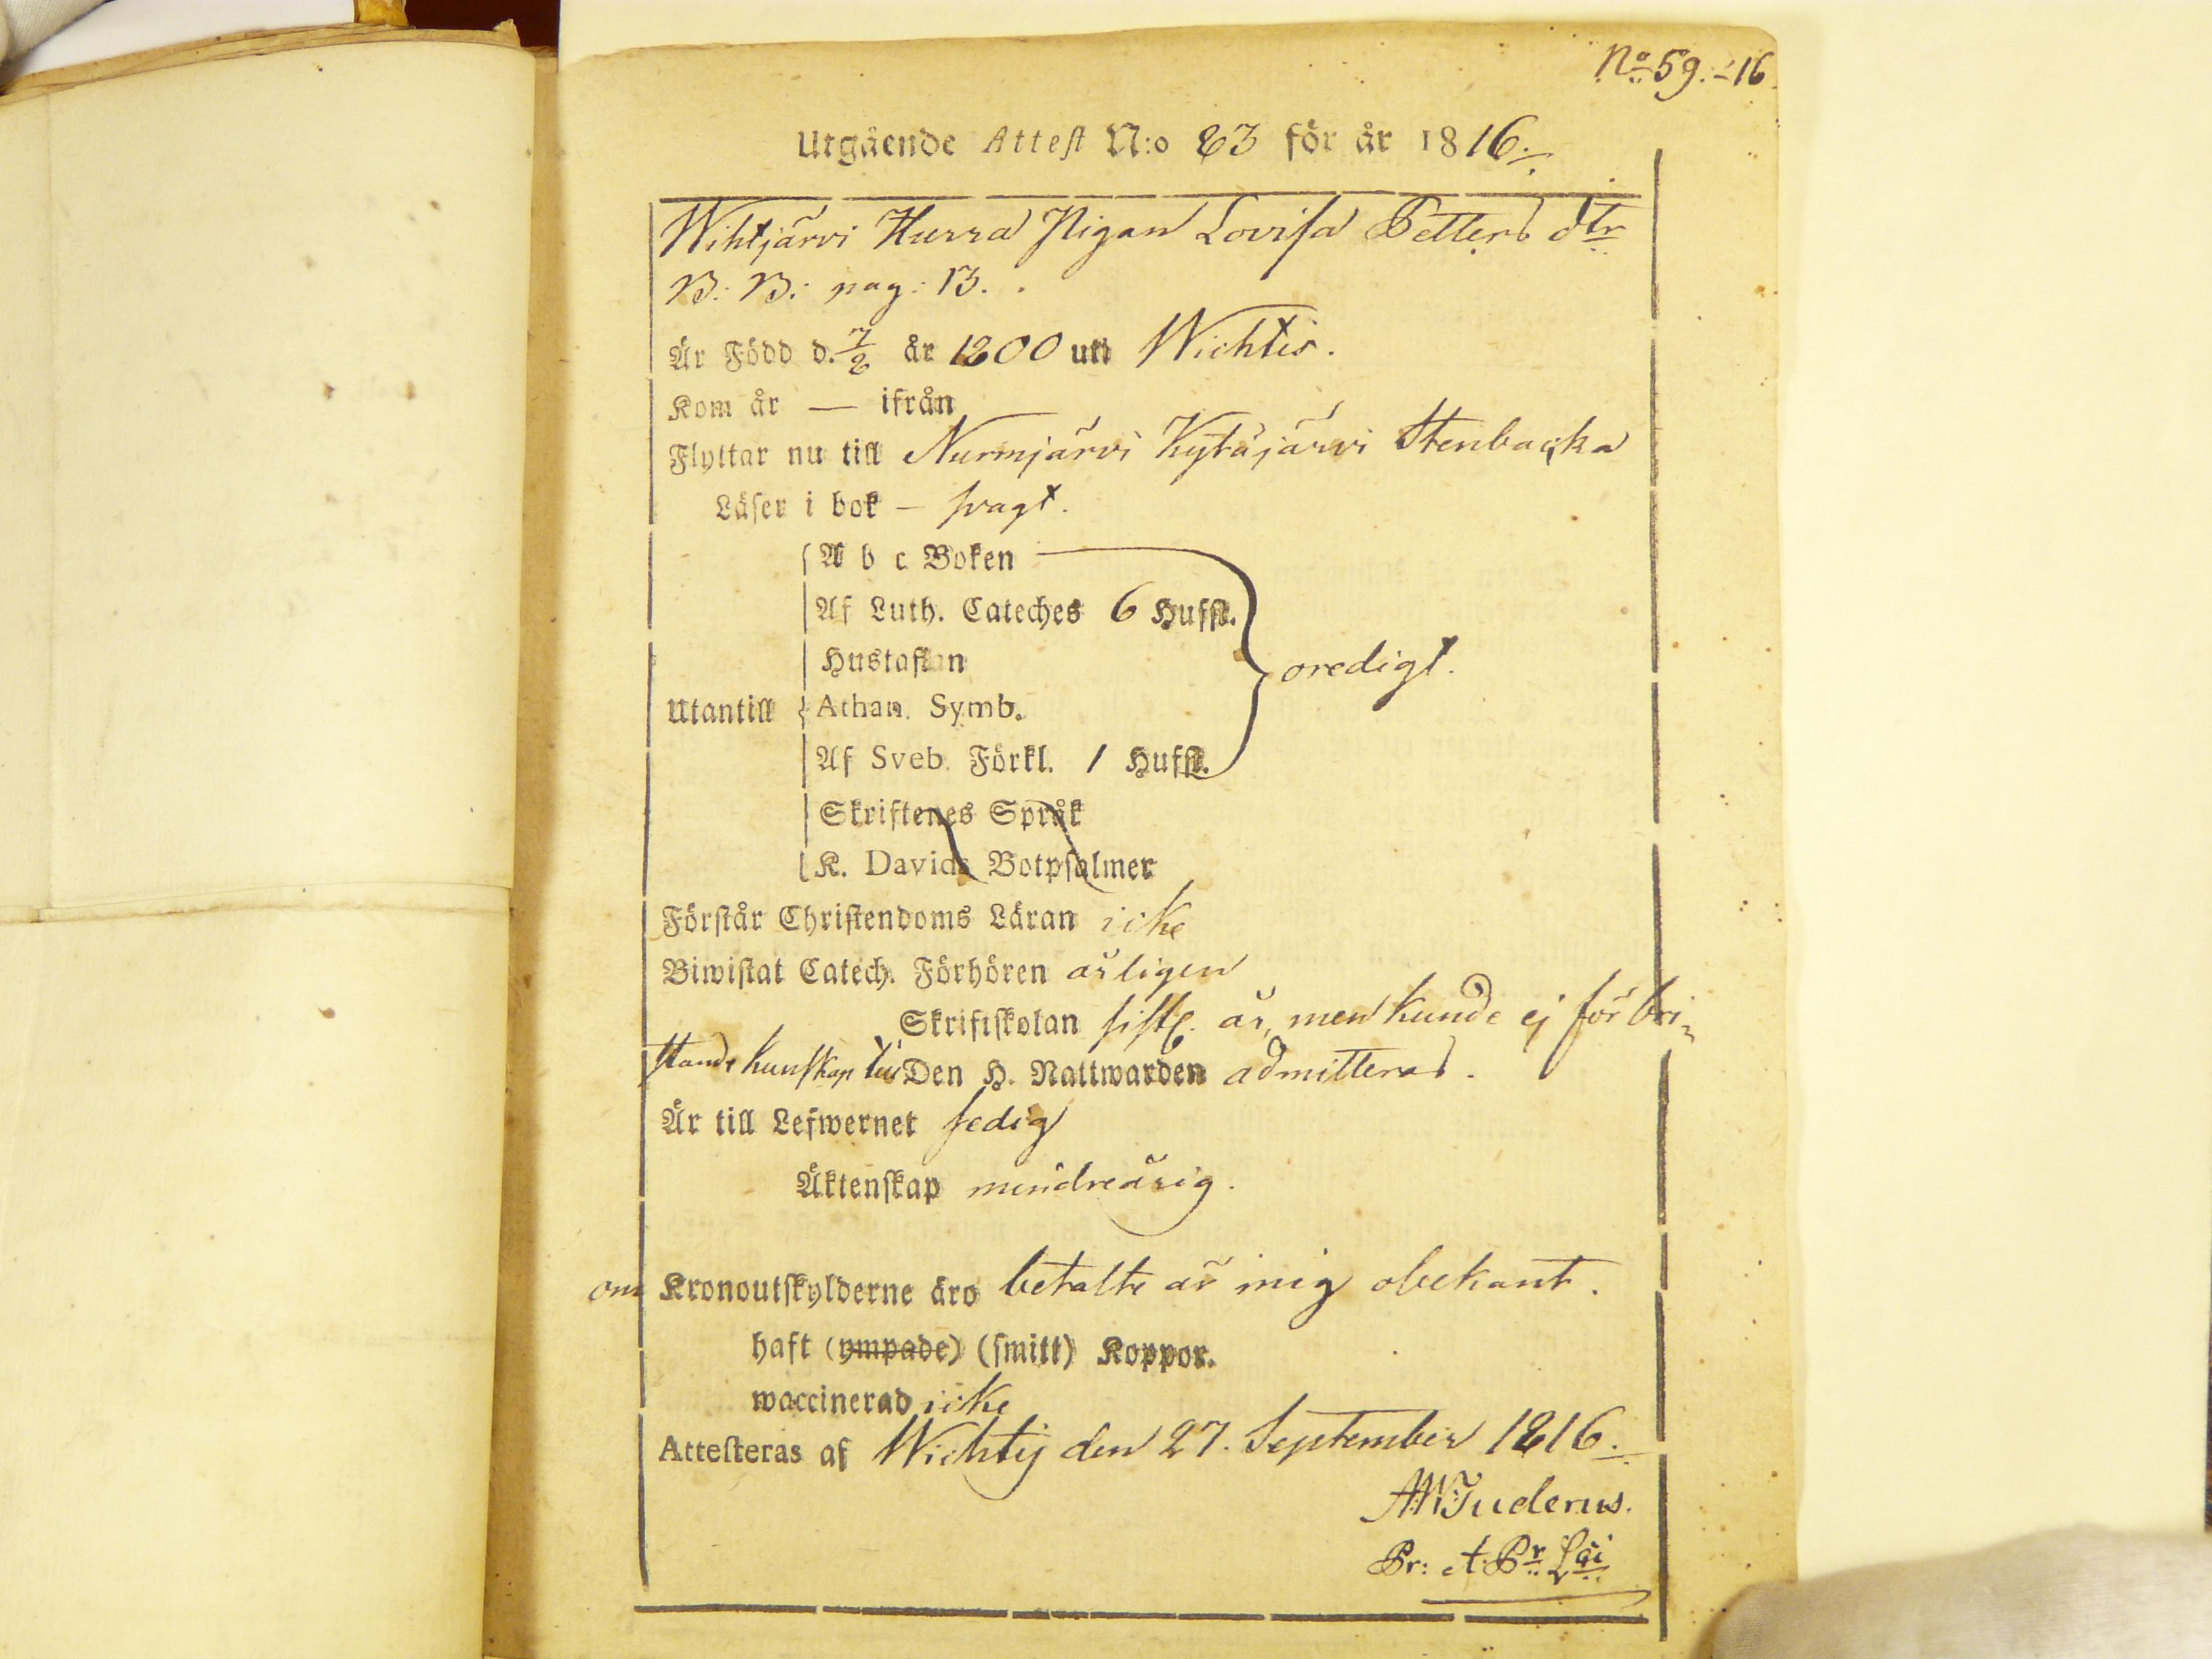 No 59.-16
Utgående Attest N:o 83 för år 1816.
Wihtjärvi Hurra Pigan Lovisa Petters dtr
B: B: pag: 13.
Är Född d. 7/8 år 1800 uti Wichtis.
Kom år — ifrån
Flyttar nu till Nurmjärvi Kytäjärvi Stenbacka
Läser i bok – svagt.
A b c Boken
Af Luth. Cateches 6 Hufst.
Hustaflan
oredigt.
Utantill Athan. Symb.
Af Sveb. Förkl. 1 Hufst.
Skriftenes Språk
K. Davids Botpsalmer
Förstår Christendoms Läran icke
Biwistat Catech. Förhören årligen
Skriftskolan sistl. år, men kunde ej för bri-
stande kunskap till Den H. Nattwarden admitteras.
Är till Lefwernet sedig
Äktenskap minderårig.
om Kronoutskylderne äro betalte är mig obekant.
haft (ympade) (smitt) Koppor.
waccinerad icke
Attesteras af Wichtis den 27. September 1816.
Juderus.
Pr: et Pr: